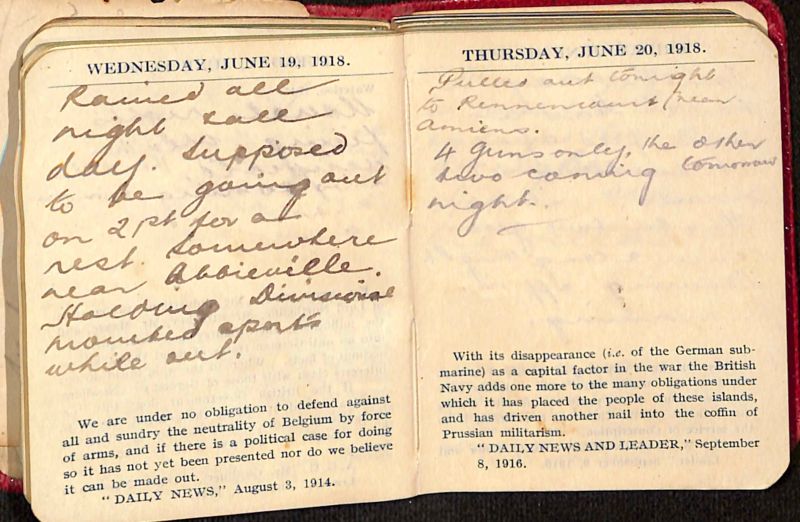 WEDNESDAY, JUNE 19, 1918.
Rained all
night & all
day. Supposed
to be going out
on 21st for a
rest. Somewhere
near Abbieville.
Holding Divisional
mounted sports
while out.
We are under no obligation to defend against
all and sundry the neutrality of Belgium by force
of arms, and if there is a political case for doing
so it has not yet been presented nor do we believe
it can be made out.
"DAILY NEWS," August 3, 1914.
THURSDAY, JUNE 20, 1918.
Pulled out tonight
to Rennencourt near
Amiens.
4 Guns only, the other
two coming tomorrow
night.
With its disappearance (i.e. of the German sub-
marine) as a capital factor in the war the British
Navy adds one more to the many obligations under
which it has placed the people of these islands,
and has driven another nail into the coffin of
Prussian militarism.
"DAILY NEWS AND LEADER," September
8, 1916.